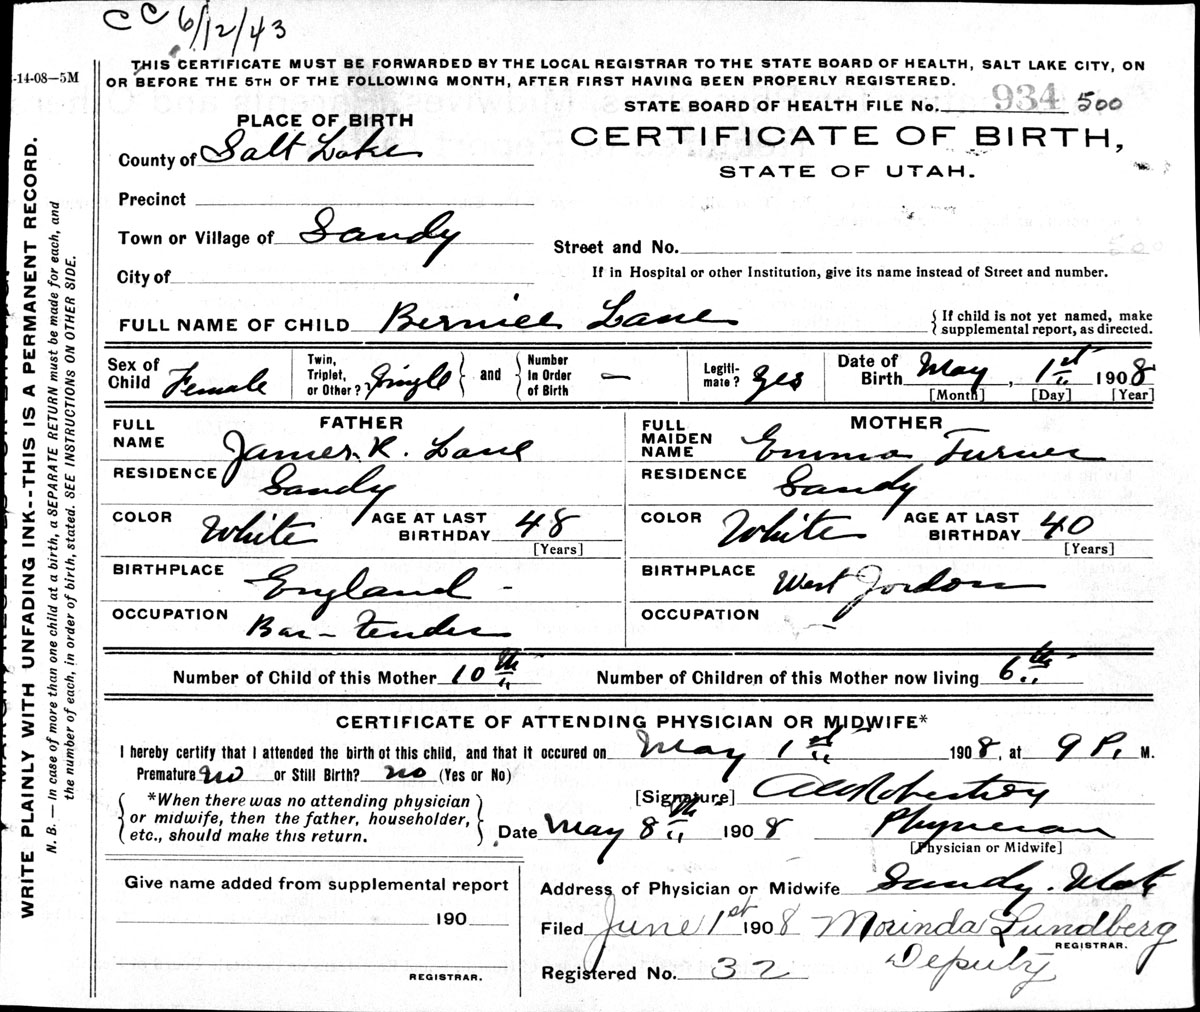 CC 6/12/43
-14-08—5M
THIS CERTIFICATE MUST BE FORWARDED BY THE LOCAL REGISTRAR TO THE STATE BOARD OF HEALTH, SALT LAKE CITY, ON
OR BEFORE THE 5TH OF THE FOLLOWING MONTH, AFTER FIRST HAVING BEEN PROPERLY REGISTERED.
STATE BOARD OF HEALTH FILE No. 934 500
PLACE OF BIRTH
CERTIFICATE OF BIRTH,
STATE OF UTAH.
County of Salt Lake
Precinct
Town or Village of Sandy
Street and No.
City of
If in Hospital or other Institution, give its name instead of Street and number.
FULL NAME OF CHILD Bernice Lane
{If child is not yet named, make
supplemental report, as directed.
Sex of Child Female
Twin, Triplet, or Other? Single } and { Number In Order of Birth —
Legitimate? Yes
Date of Birth May, 1st 1908
[Month] [Day] [Year]
FATHER
FULL NAME James R. Lane
RESIDENCE Sandy
COLOR White AGE AT LAST BIRTHDAY 48
[Years]
BIRTHPLACE England -
OCCUPATION Bar-Tender
MOTHER
FULL MAIDEN NAME Emma Turner
RESIDENCE Sandy
COLOR White AGE AT LAST BIRTHDAY 40
[Years]
BIRTHPLACE West Jordon
OCCUPATION
Number of Child of this Mother 10th
Number of Children of this Mother now living 6th
CERTIFICATE OF ATTENDING PHYSICIAN OR MIDWIFE*
I hereby certify that I attended the birth of this child, and that it occured on May 1st 1908, at 9 P. M.
Premature no or Still Birth? no (Yes or No)
{*When there was no attending physician
or midwife, then the father, householder,
etc., should make this return.}
[Signature] Robertson
Date May 8th 1908 Physician
[Physician or Midwife]
Give name added from supplemental report
190
REGISTRAR.
Address of Physician or Midwife Sandy. Utah
Filed June 1st 1908 Morinda Lundberg
REGISTRAR.
Deputy
Registered No. 32
WRITE PLAINLY WITH UNFADING INK--THIS IS A PERMANENT RECORD.
N. B.—In case of more than one child at a birth, a SEPARATE RETURN must be made for each, and
the number of each, in order of birth, stated. SEE INSTRUCTIONS ON OTHER SIDE.